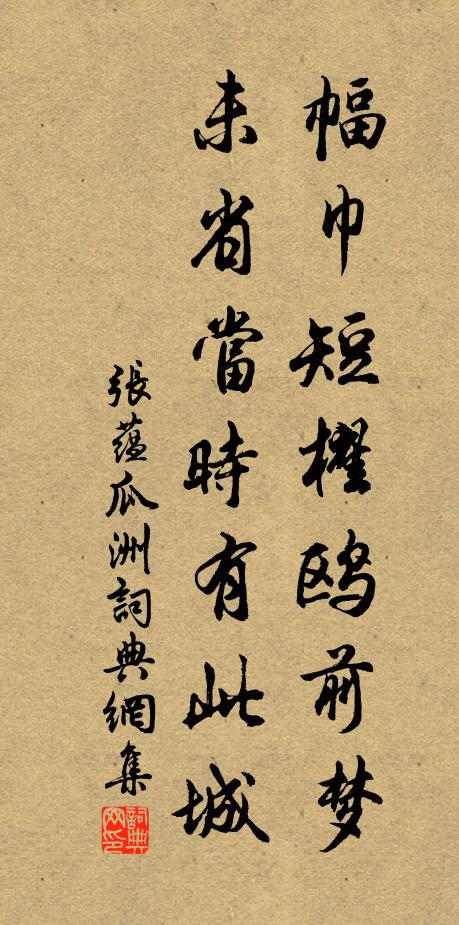 幅巾短櫂鸥前梦
未省當時有此城
張蕴瓜洲詞典網集
詞典
网印